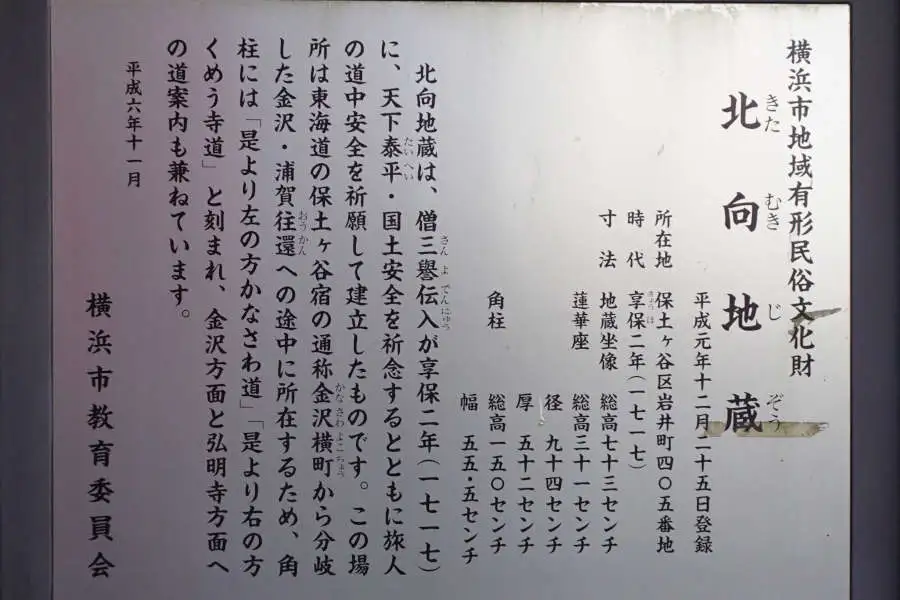 横浜市地域有形民俗文化財
北向地蔵
きたむきじぞう
平成元年十二月二十五日登録
所在地 保土ヶ谷区岩井町四〇五番地
時代 享保二年(一七一七)
きょうほ
寸法 地蔵坐像 総高七十三センチ
蓮華座 総高三十一センチ
径 九十四センチ
厚 五十二センチ
角柱 総高一五〇センチ
幅 五五・五センチ
北向地蔵は、僧三譽伝入が享保二年(一七一七)
さんよでんにゅう
に、天下泰平・国土安全を祈念するとともに旅人
たいへい
の道中安全を祈願して建立したものです。この場
所は東海道の保土ヶ谷宿の通称金沢横町から分岐
かなさわよこちょう
した金沢・浦賀往還への途中に所在するため、角
おうかん
柱には「是より左の方かなさわ道」「是より右の方
くめう寺道」と刻まれ、金沢方面と弘明寺方面へ
の道案内も兼ねています。
平成六年十一月
横浜市教育委員会